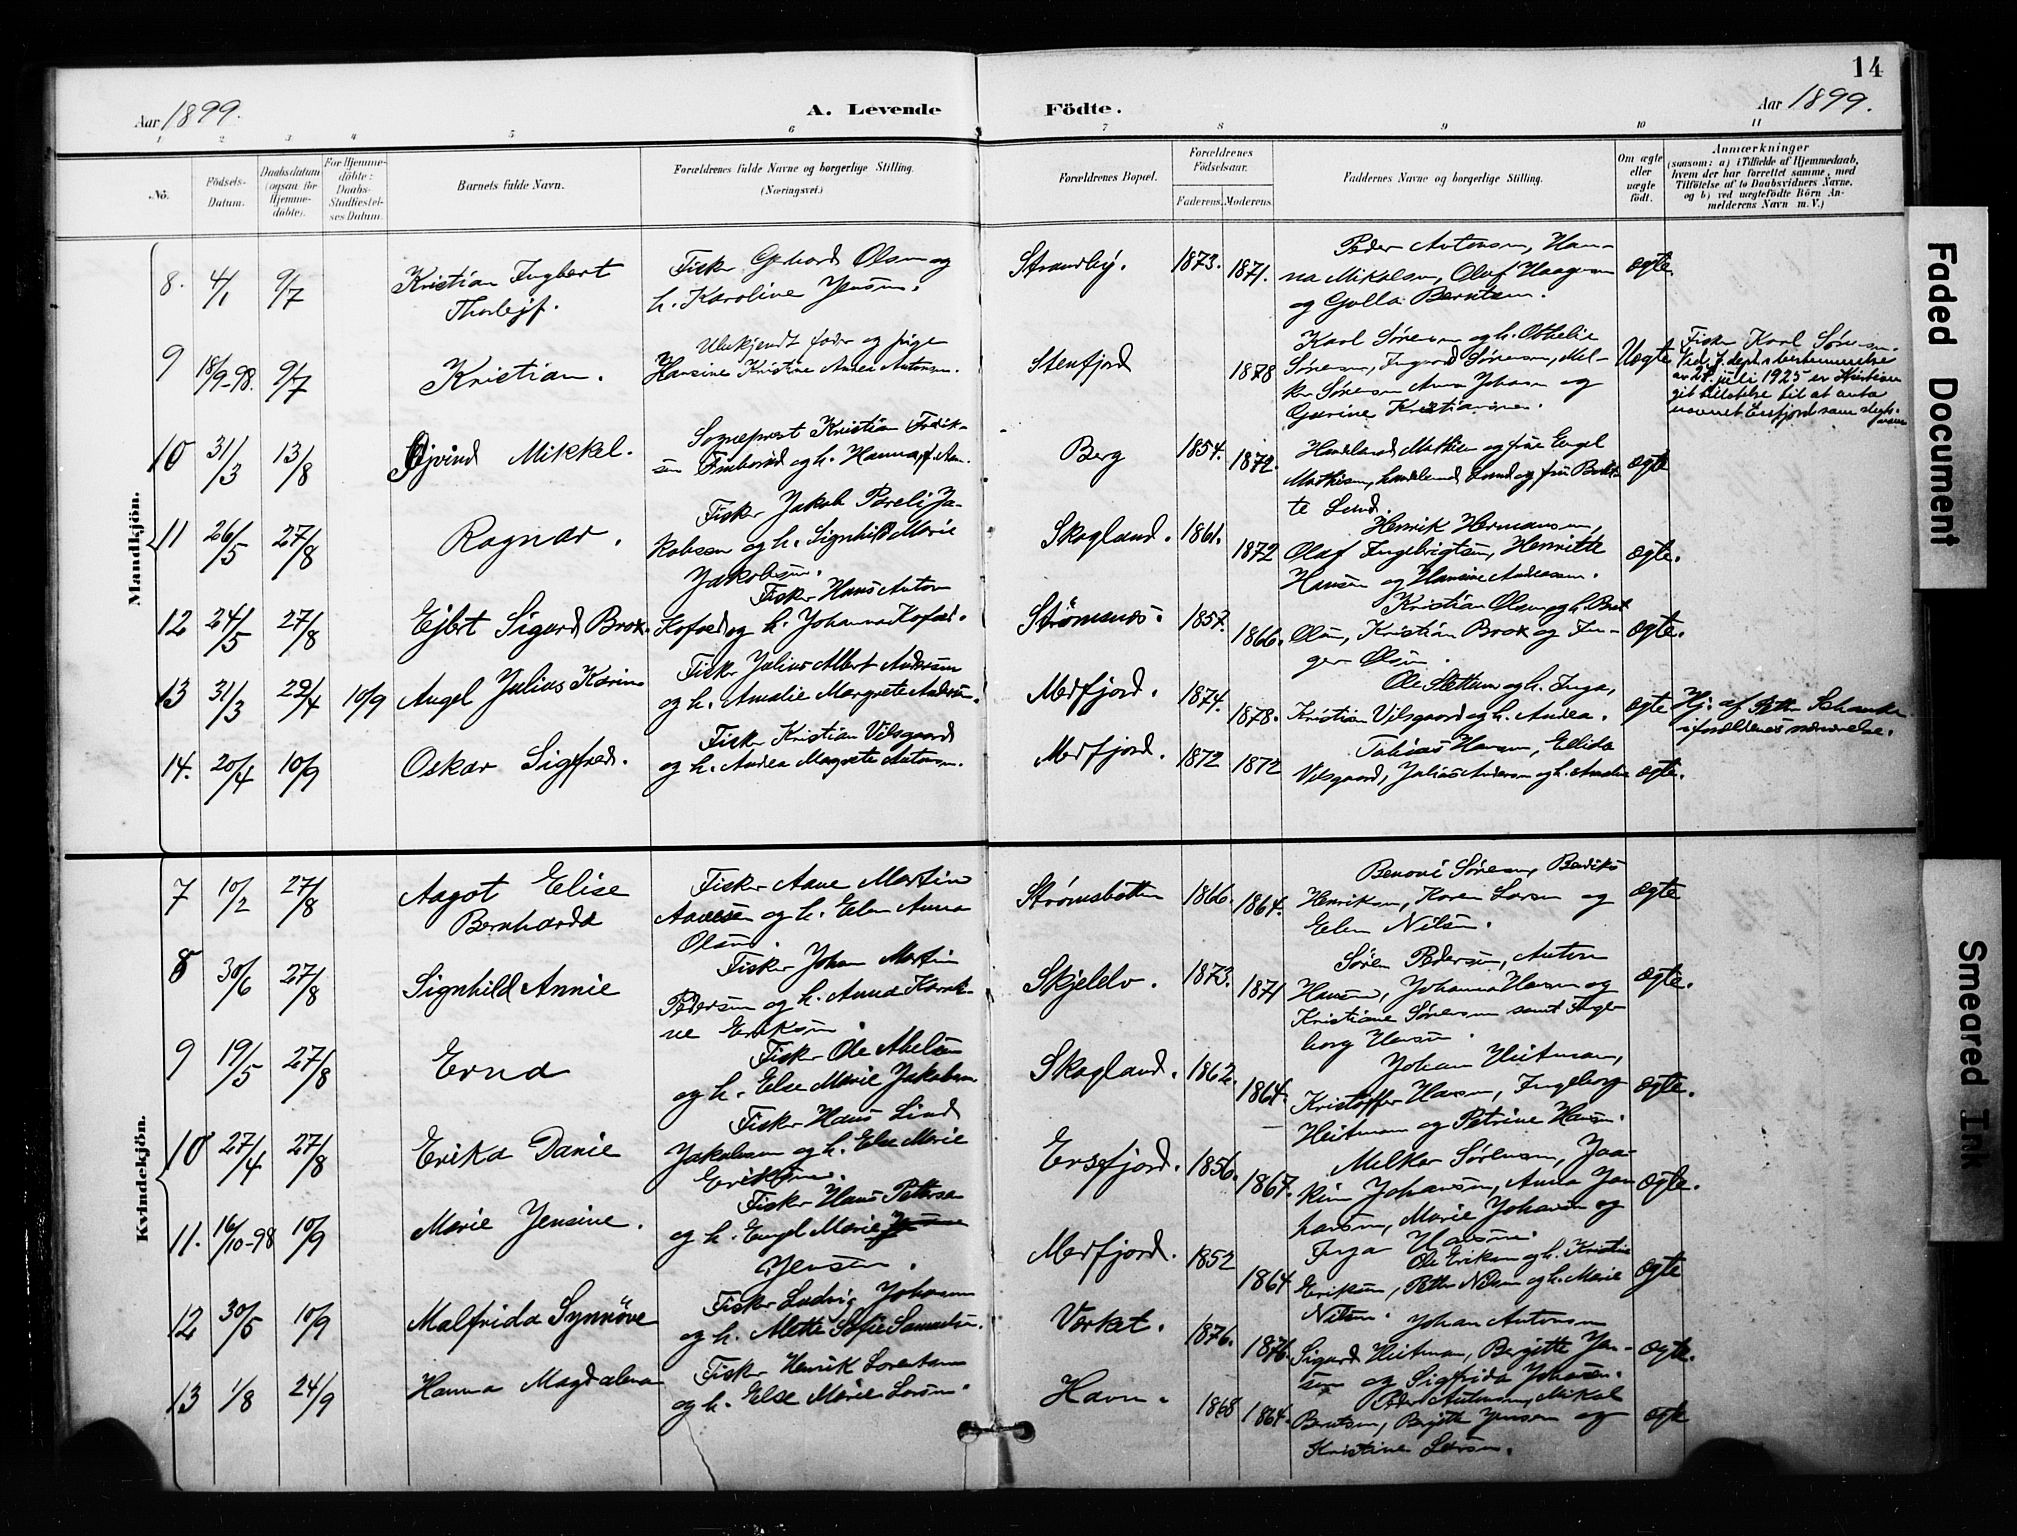 14
Aar 1899.
A. Levende Födte.
Aar 1899.
1 2 3 4 5 6 7 8 9 10 11
No.
Födsels-
Datum.
Daabsdatum
(ogsaa for
Hjemme-
döbte).
For Hjemme-
döbte:
Daabs-
Stadfæstel-
ses Datum.
Barnets fulde Navn.
Forældrenes fulde Navne og borgerlige Stilling.
(Næringsvei.)
Forældrenes Bopæl.
Forældrenes
Födselsaar.
Faderens. Moderens.
Faddernes Navne og borgerlige Stilling.
Om ægte
eller
uægte
födt.
Anmærkninger
(saasom: a) i Tilfælde af Hjemmedaab,
hvem der har forrettet samme, med
Tilföielse af to Daabsvidners Navne,
og b) ved uægtefödte Börn An-
melderens Navn m. V.)
Mandkjön.
8. 4/1 9/7 Kristian Ingbert
Thorlejf.
Fisker Gerhard Olsen og
h. Karoline Jensen.
Strandby. 1873. 1871.
Peder Antonsen, Han-
na Mikalsen, Olaf Haagensen
og Gulla Berntsen.
ægte.
9 18/9-98. 9/7 Kristian.
Ubekjendt fader og pige
Hansine Kristine Andrea Antonsen.
Stenfjord 1878
Karl Sørensen og h. Othelie
Sørensen, Ingvard Sørensen, Mel-
ker Sørensen Anna Johansen og
Gurine Kristiansen.
Uægte
Fisker Karl Sørensen.
Ved J. dep.s bestemmelse
av 28. juli 1925 er Kristian
git tillatelse til at anta
navnet Ersfjord som slegts-
navn
10 31/3 13/8 Ejvind Mikkel.
Sogneprest Kristian Fredrik-
sen og h. Hanna
Berg 1854. 1872.
Handelsmd Mathisen og frue Engel
Mathisen, handelsmd Lund og frue Birgit-
te Lund.
ægte
11 26/5 27/8 Ragnar.
Fisker Jakob Pareli Ja-
kobsen og h. Signhild Marie
Jakobsen.
Skagland. 1861. 1872
Henrik Hermansen,
Olaf Ingebrigtsen, Henrikke
Hansen og Hansine Andreassen.
ægte.
12 24/5 27/8 Ejbert Sigurd Brox.
Fisker Hans Anton
Kofoed og h. Johanna Kofoed.
Strømsnæs. 1857. 1866.
Kristian Olsen og h. Berit
Olsen, Kristian Brox og In-
ger Olsen.
ægte.
13 31/3 29/4 10/9 Angel Julius Karin
Fisker Julius Albert Andersen
og h. Amalie Margrete Andersen.
Mefjord. 1874. 1878.
Ole Slettum og h. Inga,
Kristian Vilsgaard og h. Andrea.
ægte
Hj. af Petter Schanke
i forældrenes nærværelse.
14. 20/4 10/9 Oskar Sigfred.
Fisker Kristian Vilsgaard
og h. Andrea Magrete Antonsen.
Mefjord. 1872 1872
Tobias Hansen, Ellida
Vilsgaard, Julius Andersen og h. Amalie
ægte.
Kvindekjön.
7 10/2 27/8 Aagot Elise
Bernharda
Fisker Aane Martin
Aanesen og h. Elen Anna
Olsen.
Strømsbotten 1866. 1864.
Benoni Sørensen, Bendiks
Henriksen, Karen Larsen og
Elen Nilsen.
ægte
8 30/6 27/8 Signhild Annie
Fisker Johan Martin
Pedersen og h. Anna Karoli-
ne Eriksen.
Skjelelv. 1873. 1871
Søren Pedersen, Anton
Hansen, Johanna Hansen og
Kristiane Sørensen samt Inge-
borg Hansen.
ægte.
9 19/5 27/8 Erna
Fisker Ole Abelsen
og h. Else Marie Jakobsen.
Skagland. 1862. 1864.
Johan Heitman,
Kristoffer Hansen, Ingeborg
Heitman og Petrine Hansen.
ægte.
10 27/4 27/8 Erika Danie
Fisker Hans Lind
Jakobsen og h. Else Marie
Eriksen.
Ersfjord. 1856. 1867.
Melker Sørensen, Joa-
kim Johansen, Anna Jo-
hansen, Marie Johansen og
Inga Hansen.
ægte.
11. 16/10-98 10/9 Marie Jensine.
Fisker Hans Pettersen
og h. Engel Marie
Jensen.
Mefjord. 1852 1864
Ole Eriksen og h. Kristine
Eriksen, Petter Nilsen og h. Marie
Nilsen.
ægte
12 30/5 10/9 Malfrida Synnöve
Fisker Ludvig Johansen
og h. Mette Sofie Samuelsen.
Værket. 1876. 1876.
Johan Antonsen
Sigurd Heitman, Bergitte Jen-
sen og Sigfrida Johansen.
ægte.
13 1/8 24/9 Hanna Magdalena
Fisker Henrik Lorentsen
og h. Else Marie Larsen.
Havn. 1868 1864.
Peder Antonsen, Mikal
Berntsen, Bergitte Jensen og
Kristine Larsen.
ægte
Faded Document
Smeared Ink